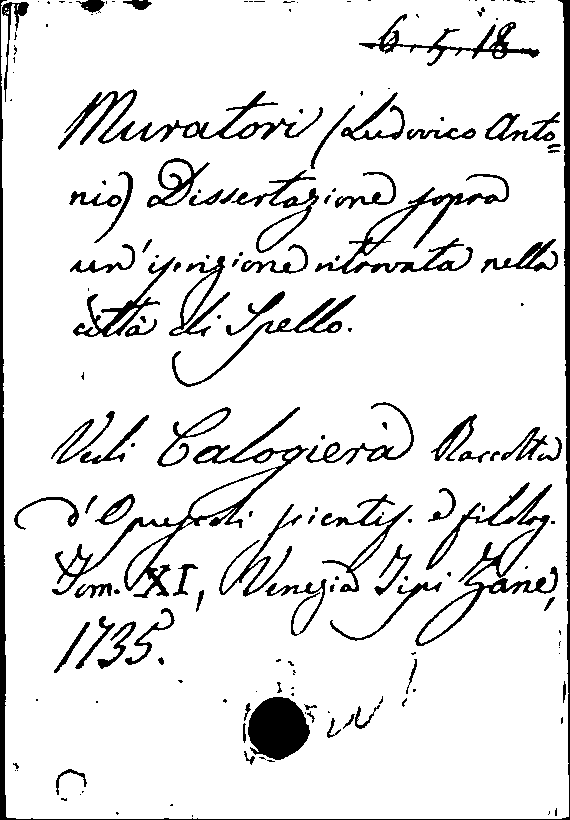 6.5.18
Muratori (Ludovico Anto=
nio) Dissertazione sopra
un'iscrizione ritrovata nella
città di Spello.
Vedi Calogierà Raccolta
d'Opuscoli scientif. e filolog.
Tom. XI, Venezia Tipi Zane,
1735.